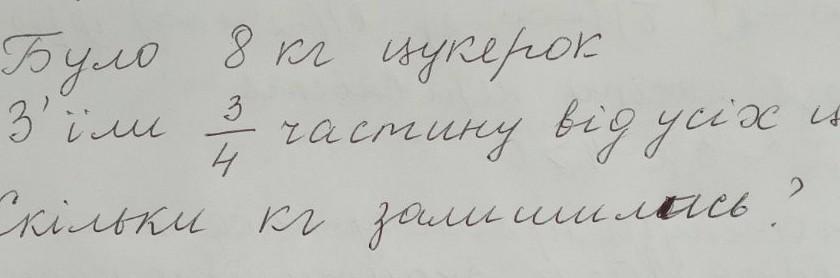 Було 8 кг цукерок
З'їли 3/4 частину від усіх ц
Скільки кг залишилось?